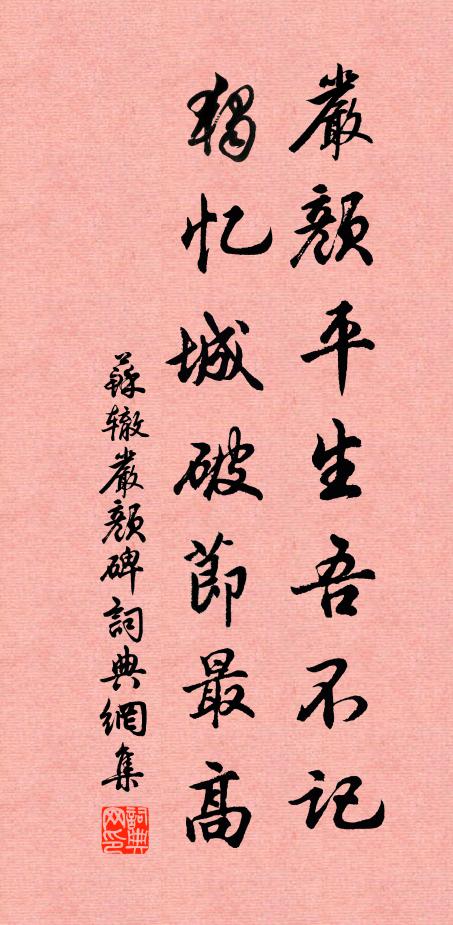 嚴顏平生吾不记
獨忆城破節最高
蘇辙嚴顏碑詞典網集
詞典网印